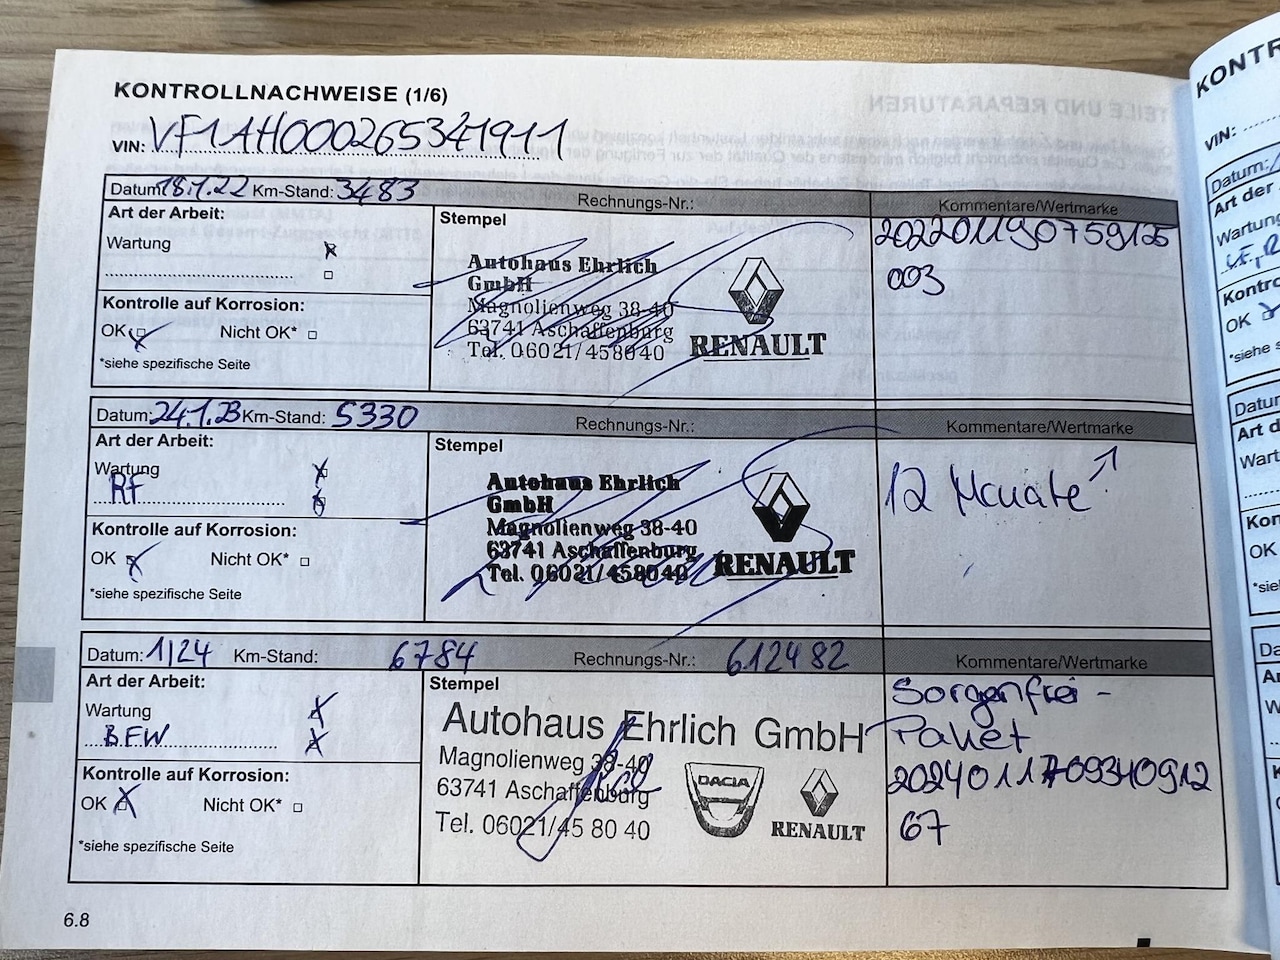 KONTROLLNACHWEISE (1/6)
VIN: VF1AH000265341911
Datum: 18.1.22 Km-Stand: 3483 Rechnungs-Nr.: Kommentare/Wertmarke
Art der Arbeit:
Wartung
Kontrolle auf Korrosion:
OK Nicht OK*
*siehe spezifische Seite
Stempel
Autohaus Ehrlich
GmbH
Magnolienweg 38-40
63741 Aschaffenburg
Tel. 06021/458040
RENAULT
20220119075912
003
Datum: 24.1.23 Km-Stand: 5330 Rechnungs-Nr.: Kommentare/Wertmarke
Art der Arbeit:
Wartung
RF
Kontrolle auf Korrosion:
OK Nicht OK*
*siehe spezifische Seite
Stempel
Autohaus Ehrlich
GmbH
Magnolienweg 38-40
63741 Aschaffenburg
Tel. 06021/458040
RENAULT
12 Monate
Datum: 1/24 Km-Stand: 6784 Rechnungs-Nr.: 612482 Kommentare/Wertmarke
Art der Arbeit:
Wartung
BFW
Kontrolle auf Korrosion:
OK Nicht OK*
*siehe spezifische Seite
Stempel
Autohaus Ehrlich GmbH
Magnolienweg 38-40
63741 Aschaffenburg
Tel. 06021/45 80 40
DACIA
RENAULT
Sorgenfrei-
Paket
2024011709340912
67
6.8
KONTR
VIN:
Datum:
Art der
Wartung
Kontro
OK
*siehe s
Datu
Art d
Wart
Kon
OK
*sie